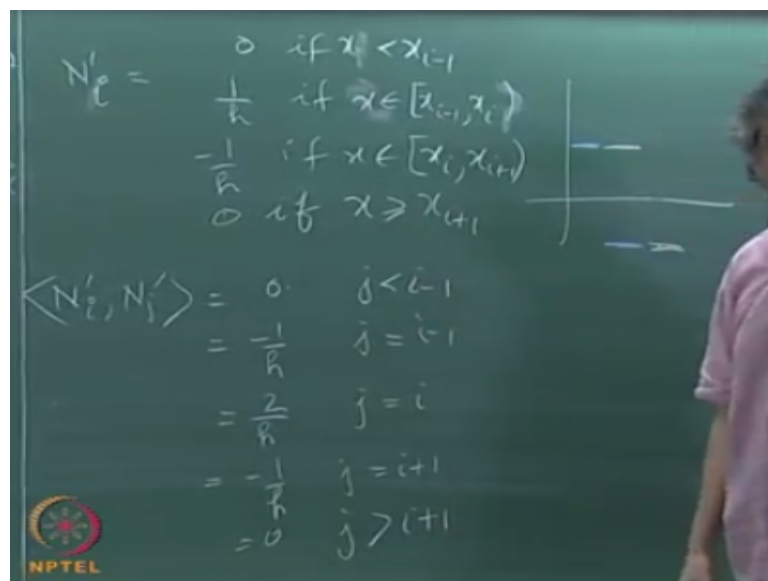 0 if x < x_{i-1}
N'_i = 1/h if x ∈ [x_{i-1}, x_i)
-1/h if x ∈ [x_i, x_{i+1})
0 if x ≥ x_{i+1}
<N'_i, N'_j> = 0 j < i-1
= -1/h j = i-1
= 2/h j = i
= -1/h j = i+1
= 0 j > i+1
NPTEL